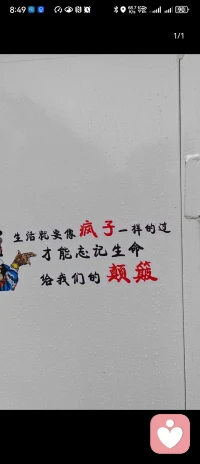 8:49
1/1
生活就要像疯子一样的过
才能忘记生命
给我们的颠簸